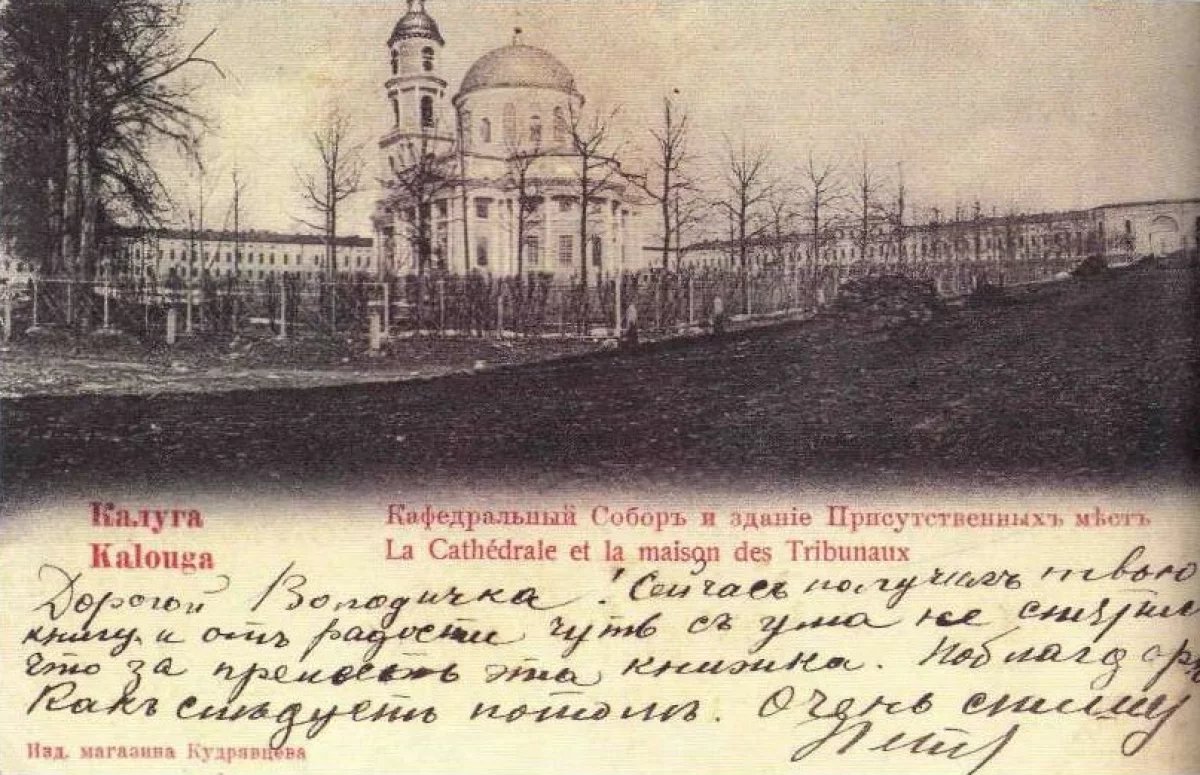 Калуга
Kalouga
Кафедральный Соборъ и зданіе Присутственныхъ мѣстъ
La Cathédrale et la maison des Tribunaux
Дорогой Володичка! Сейчасъ получилъ твою
книгу и отъ радости чуть съ ума не спятил
что за прелесть эта книжка. Поблагодарю
Какъ слѣдуетъ потомъ. Очень спѣшу
Петр
Изд. магазина Кудрявцева